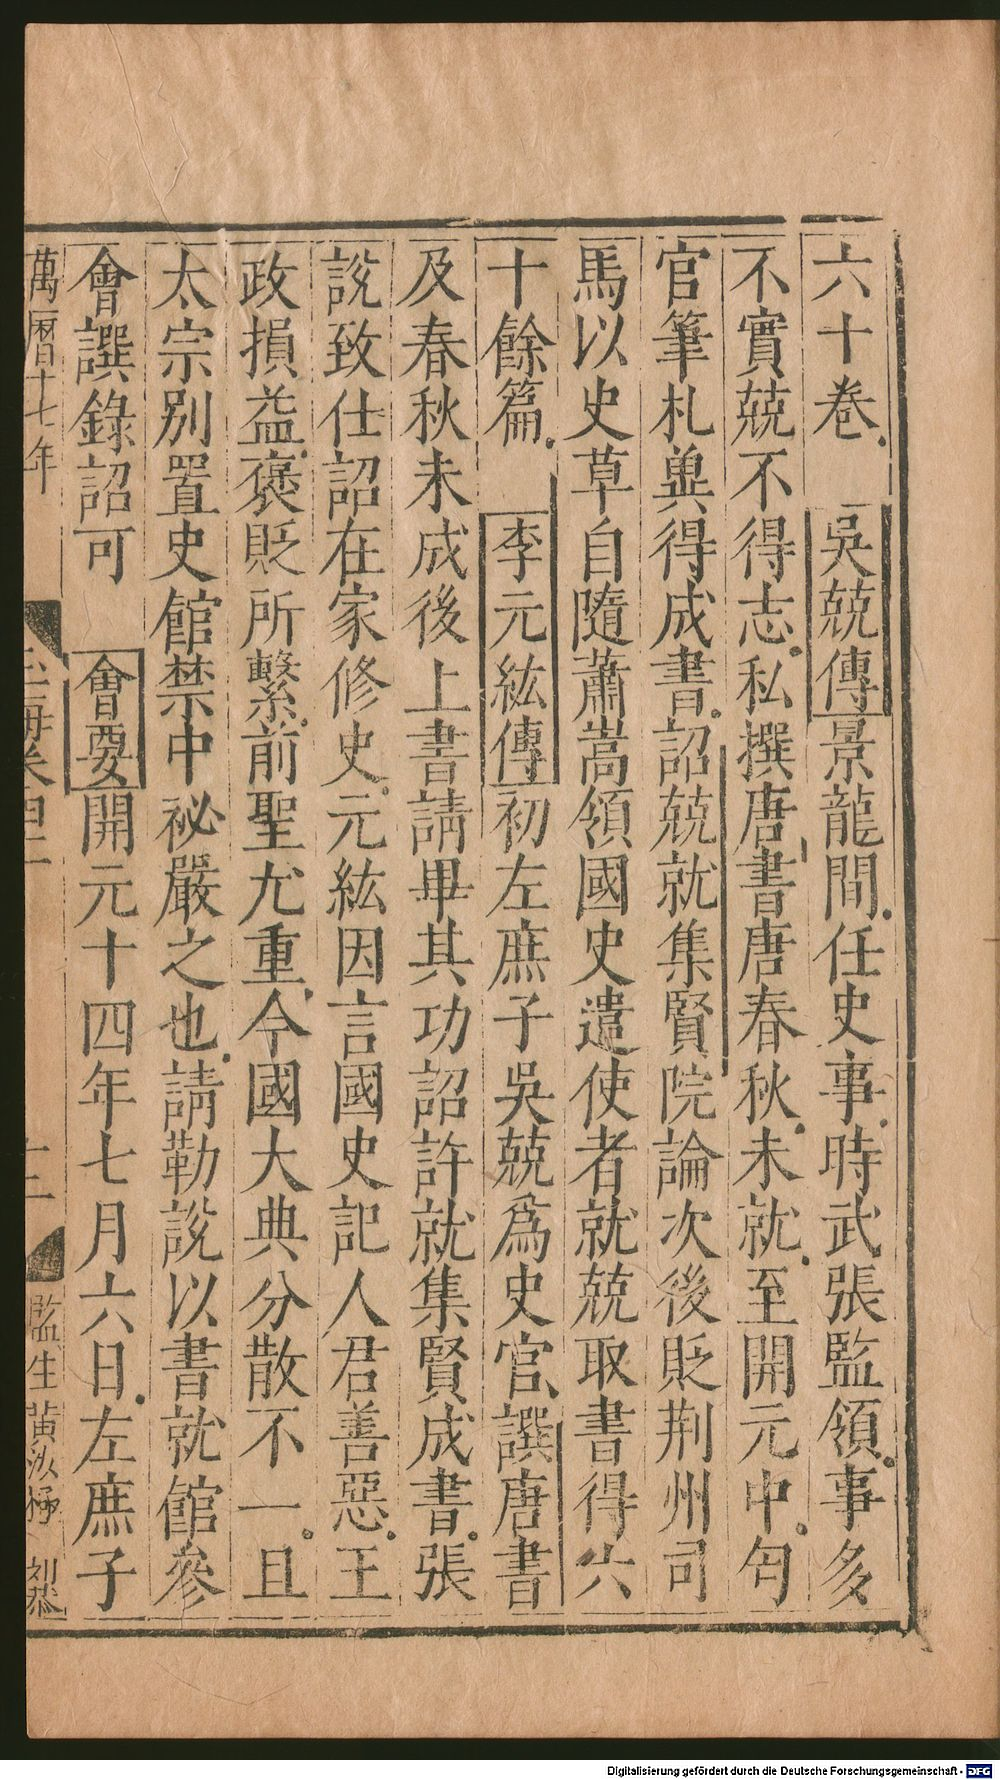 六十卷 吳兢傳景龍間任史事時武張監領事多
不實兢不得志私撰唐書唐春秋未就至開元中匄
官筆札兾得成書詔兢就集賢院論次後貶荆州司
馬以史草自隨蕭嵩領國史遣使者就兢取書得六
十餘篇 李元紘傳初左庶子吳兢爲史官譔唐書
及春秋未成後上書請畢其功詔許就集賢成書張
説致仕詔在家修史元紘因言國史記人君善惡王
政損益褒貶所繫前聖尤重今國大典分散不一且
太宗别置史館禁中祕嚴之也請勒説以書就館參
會譔錄詔可 會要開元十四年七月六日左庶子
萬曆十七年 玉海卷 監生黄汝極
Digitalisierung gefördert durch die Deutsche Forschungsgemeinschaft - DFG